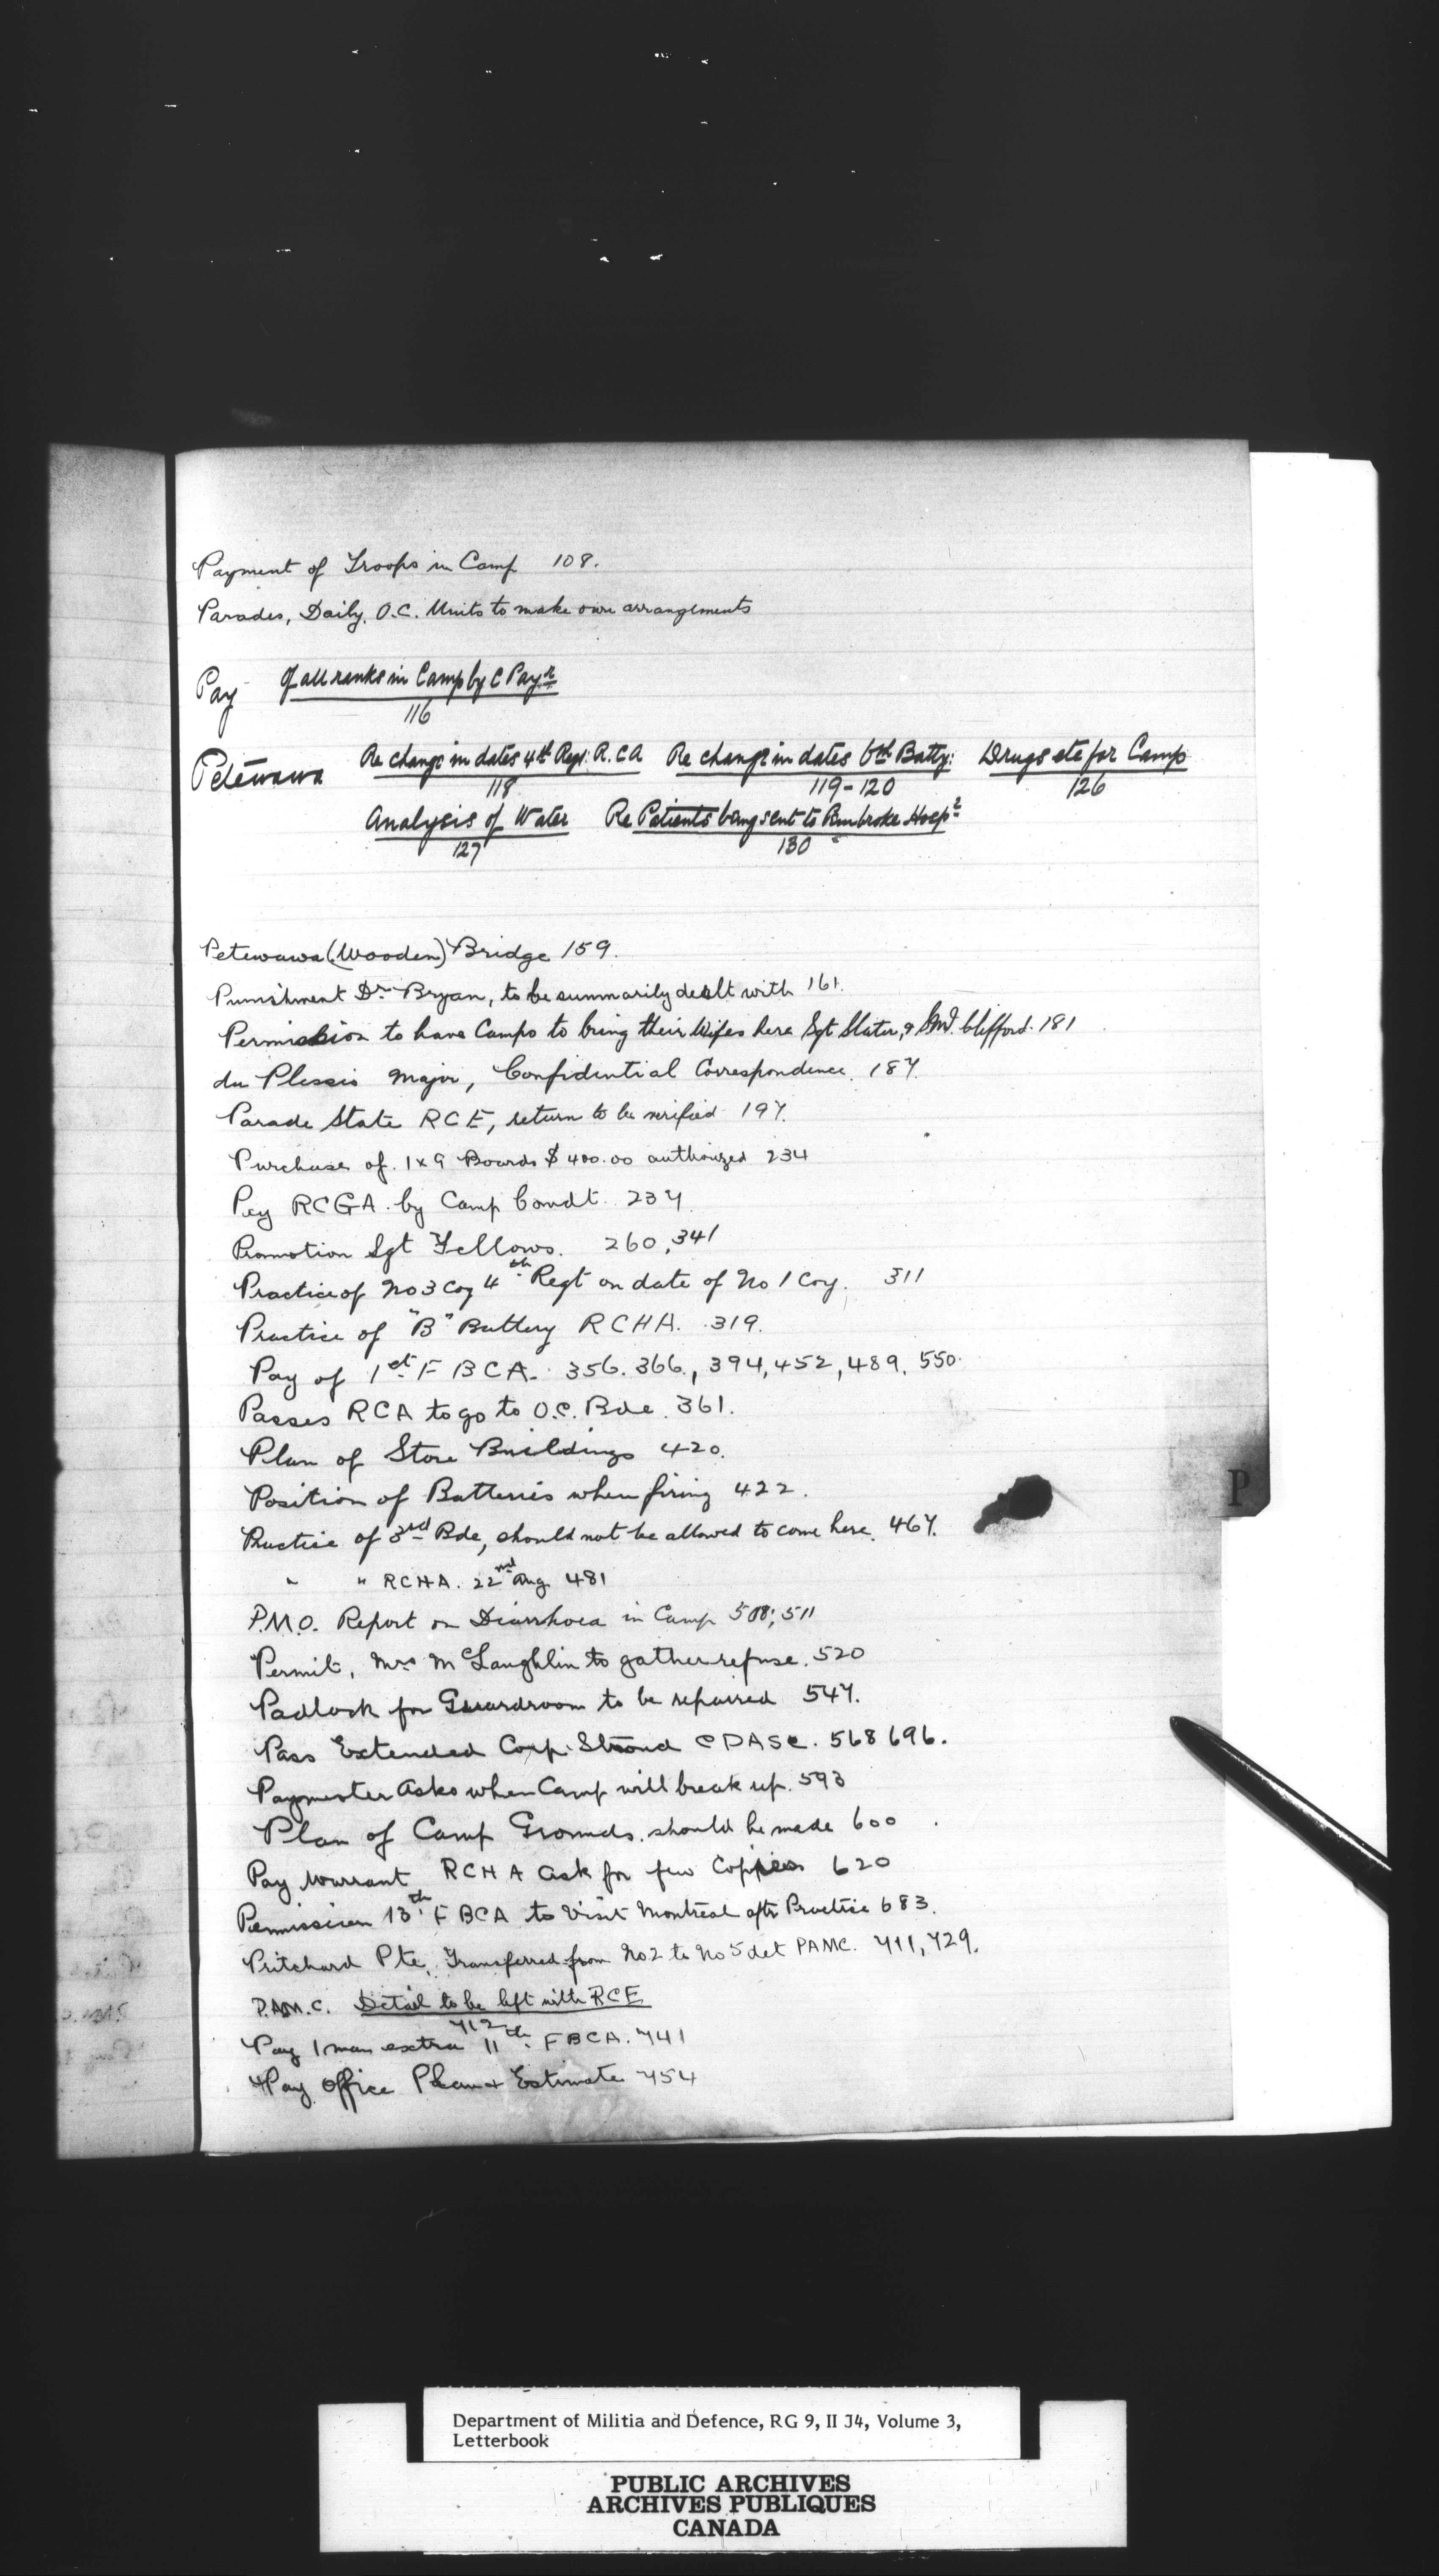 Payment of Troops in Camp 108.
Parades, Daily, O.C. Units to make own arrangements
Pay Of all ranks in Camp by C Payr
116
Petewawa Re change in dates 4th Regt R.C.A Re change in dates 6th Batty: Drugs etc for Camp
118 119-120 126
Analysis of Water Re Patients being sent to Pembroke Hospl
127 130
Petewawa (Wooden) Bridge 159.
Punishment Dr Bryan, to be summarily dealt with 161.
Permission to have Camps to bring their Wifes here Sgt Slater, & Clifford. 181
du Plessis Major, Confidential Correspondence. 187.
Parade State RCE, return to be verified 197.
Purchase of 1x9 Boards $400.00 authorized 234
Pay RCGA. by Camp Comdt. 237.
Promotion Sgt Fellows. 260, 341
Practice of No 3 Coy 4th Regt on date of No 1 Coy. 311
Practice of "B" Battery RCHA. 319.
Pay of 1st F BCA. 356. 366., 394, 452, 489, 550.
Passes RCA to go to O.C. Bde. 361.
Plan of Store Buildings 420.
Position of Batteries when firing 422.
Practice of 3rd Bde, should not be allowed to come here. 467.
" " RCHA. 22nd Aug 481
P.M.O. Report on Diarrhoea in Camp 508, 511
Permit, Mrs McLaughlin to gather refuse. 520
Padlock for Guardroom to be repaired 547.
Pass Extended Corp. Stroud CPASC. 568 696.
Paymaster Asks when Camp will break up. 593
Plan of Camp Grounds. should be made 600
Pay Warrant RCHA ask for few Copies 620
Permission 13th F BCA to Visit Montreal aftr Practice 683.
Pritchard Pte, Transferred from No 2 to No 5 det PAMC. 711, 729.
P.AM.C. Detail to be left with RCE
712
Pay 1 man extra 11th. FBCA. 741
Pay Office Plan & Estimate 754
P
Department of Militia and Defence, RG 9, II J4, Volume 3,
Letterbook
PUBLIC ARCHIVES
ARCHIVES PUBLIQUES
CANADA